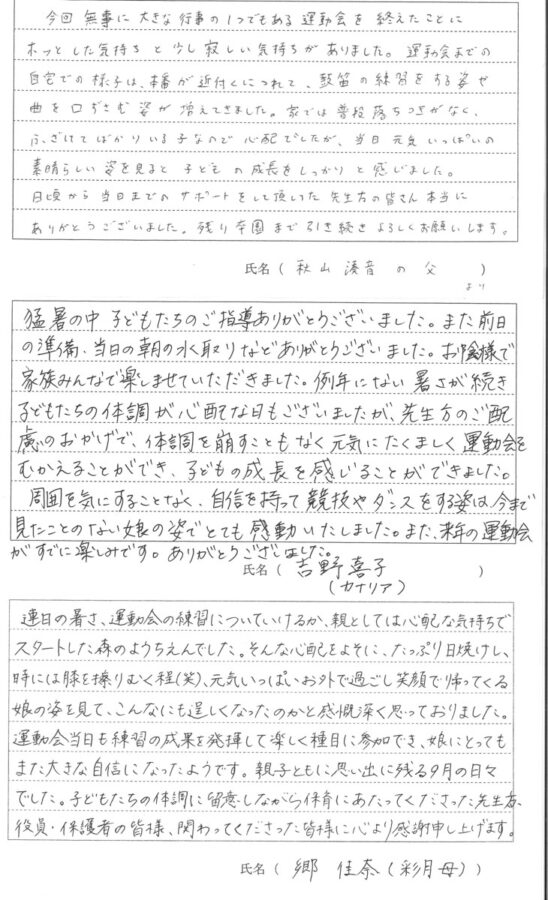 今回 無事に 大きな 行事の 1つでもある 運動会を 終えたことに
ホッと した 気持ち と 少し 寂しい 気持ちが ありました。 運動会までの
自宅での 様子は、本番が 近付くにつれて、鼓笛 の 練習を する 姿や
曲を 口ずさむ 姿が 増えてきました。家では 普段 落ちつきがなく、
ふざけて ばかり いる 子なので 心配 でしたが、当日 元気 いっぱいの
素晴らしい 姿を 見ると 子ども の 成長を しっかり と 感じました。
日頃から 当日までの サポートをして頂いてた 先生方の 皆さん 本当に
ありがとうございました。残り 卒園 まで 引き続き よろしくお願いします。
氏名 ( 秋山 湊音 の 父 )
より
猛暑の中 子どもたちのご指導ありがとうございました。また前日
の準備、当日の朝の水取りなどありがとうございました。お陰様で
家族みんなで楽しませていただきました。例年にない暑さが続き
子どもたちの体調が心配な日もございましたが、先生方のご配
慮のおかげで、体調を崩すこともなく元気にたくましく運動会を
むかえることができ、子どもの成長を感じることができました。
周囲を気にすることなく、自信を持って競技やダンスをする姿は、今まで
見たことのない娘の姿でとても感動いたしました。また、来年の運動会
がすでに楽しみです。ありがとうございました。
氏名 ( 吉野喜子 )
(カナリア)
連日の暑さ、運動会の練習についていけるか、親としては心配な気持ちで
スタートした森のようちえんでした。そんな心配をよそに、たっぷり日焼けし、
時には膝を擦りむく程(笑)、元気いっぱいお外で過ごし笑顔で帰ってくる
娘の姿を見て、こんなにも逞しくなったのかと感慨深く思っておりました。
運動会当日も練習の成果を発揮して楽しく種目に参加でき、娘にとっても
また大きな自信になったようです。親子ともに思い出に残る9月の日々
でした。子どもたちの体調に留意しながら保育にあたってくださった先生方、
役員・保護者の皆様、関わってくださった皆様に心より感謝申し上げます。
氏名 ( 郷 佳奈(彩月母) )